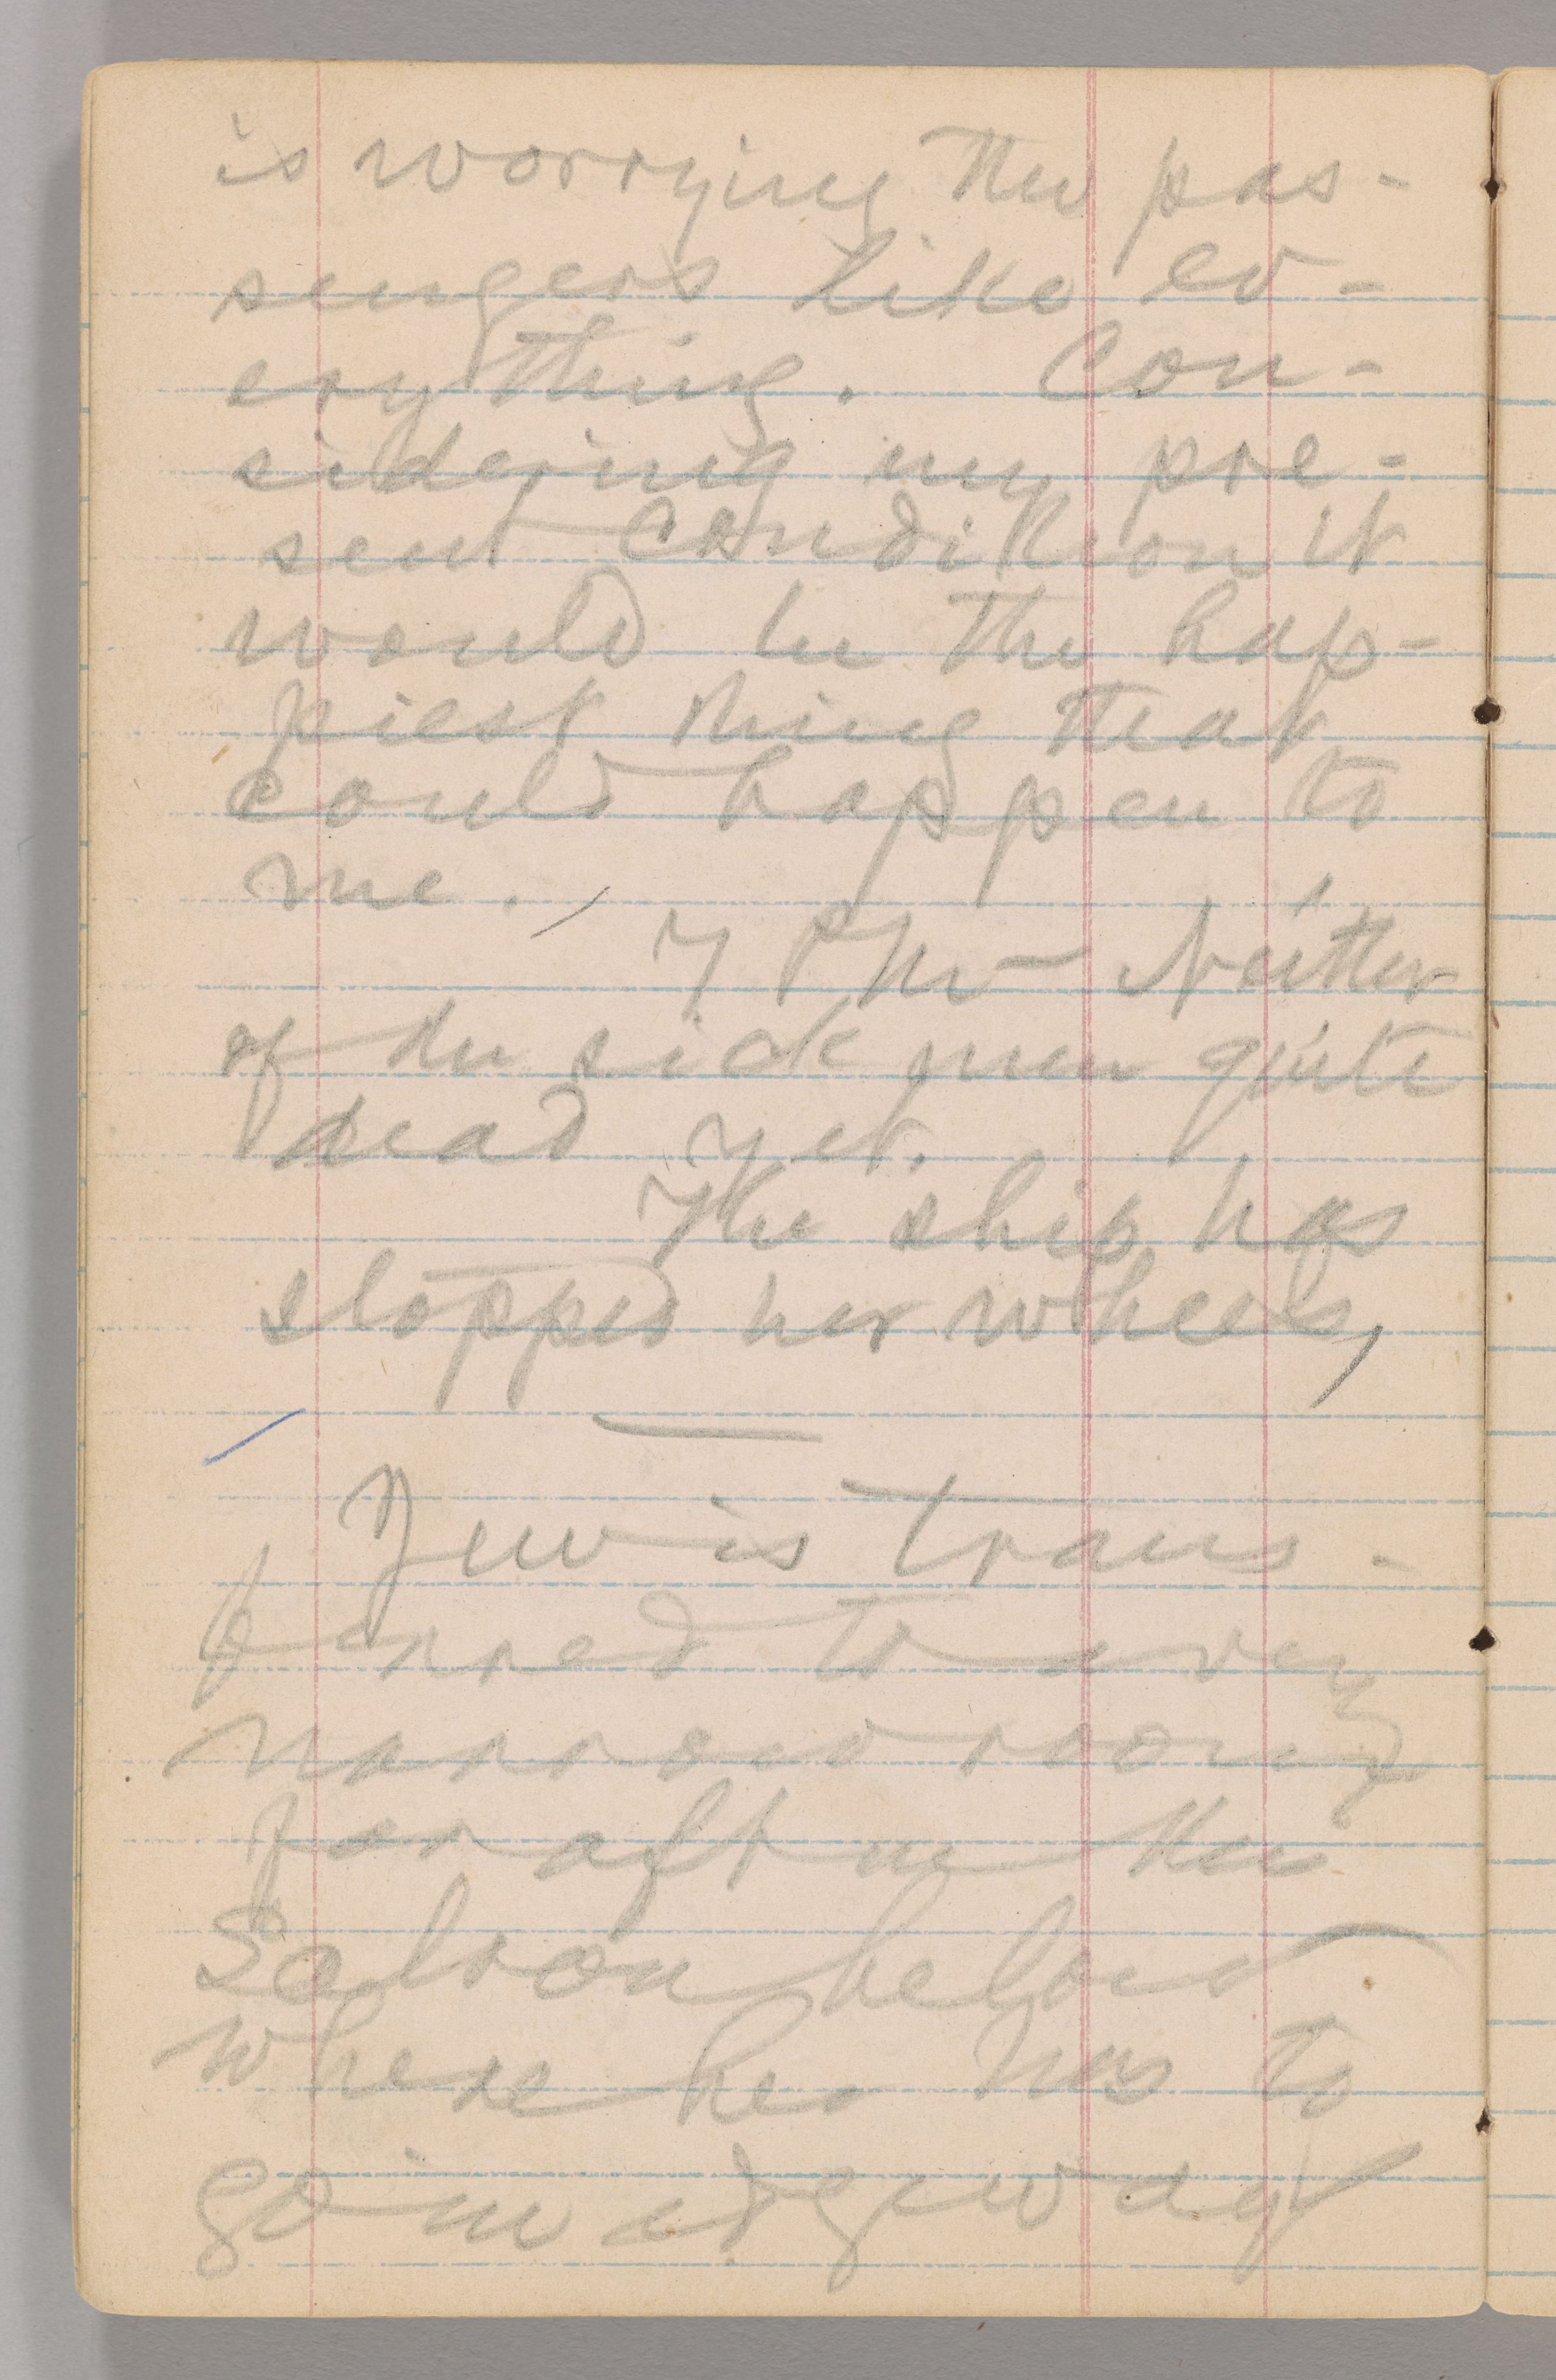 is worrying the pas-
sengers like ev-
erything. Con-
sidering my pre-
sent condition it
would be the hap-
piest thing that
could happen to
me.
7 PM — Neither
of the sick men quite
dead yet.
The ship has
stopped her wheels,
Jew is trans-
ferred to a very
narrow room
far aft in the
Saloon below
where he has to
go in edgeways